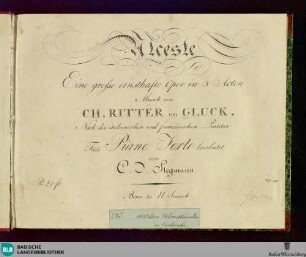 Alceste
Eine große ernsthafte Oper in 3 Acten
Musik von
CH. RITTER von GLUCK.
Nach der italienischen und französischen Partitur
Für Piano Forte bearbeitet
von
C. D. Stegmann
Bonn bei N. Simrock
BLB
BADISCHE
LANDESBIBLIOTHEK
Baden-Württemberg